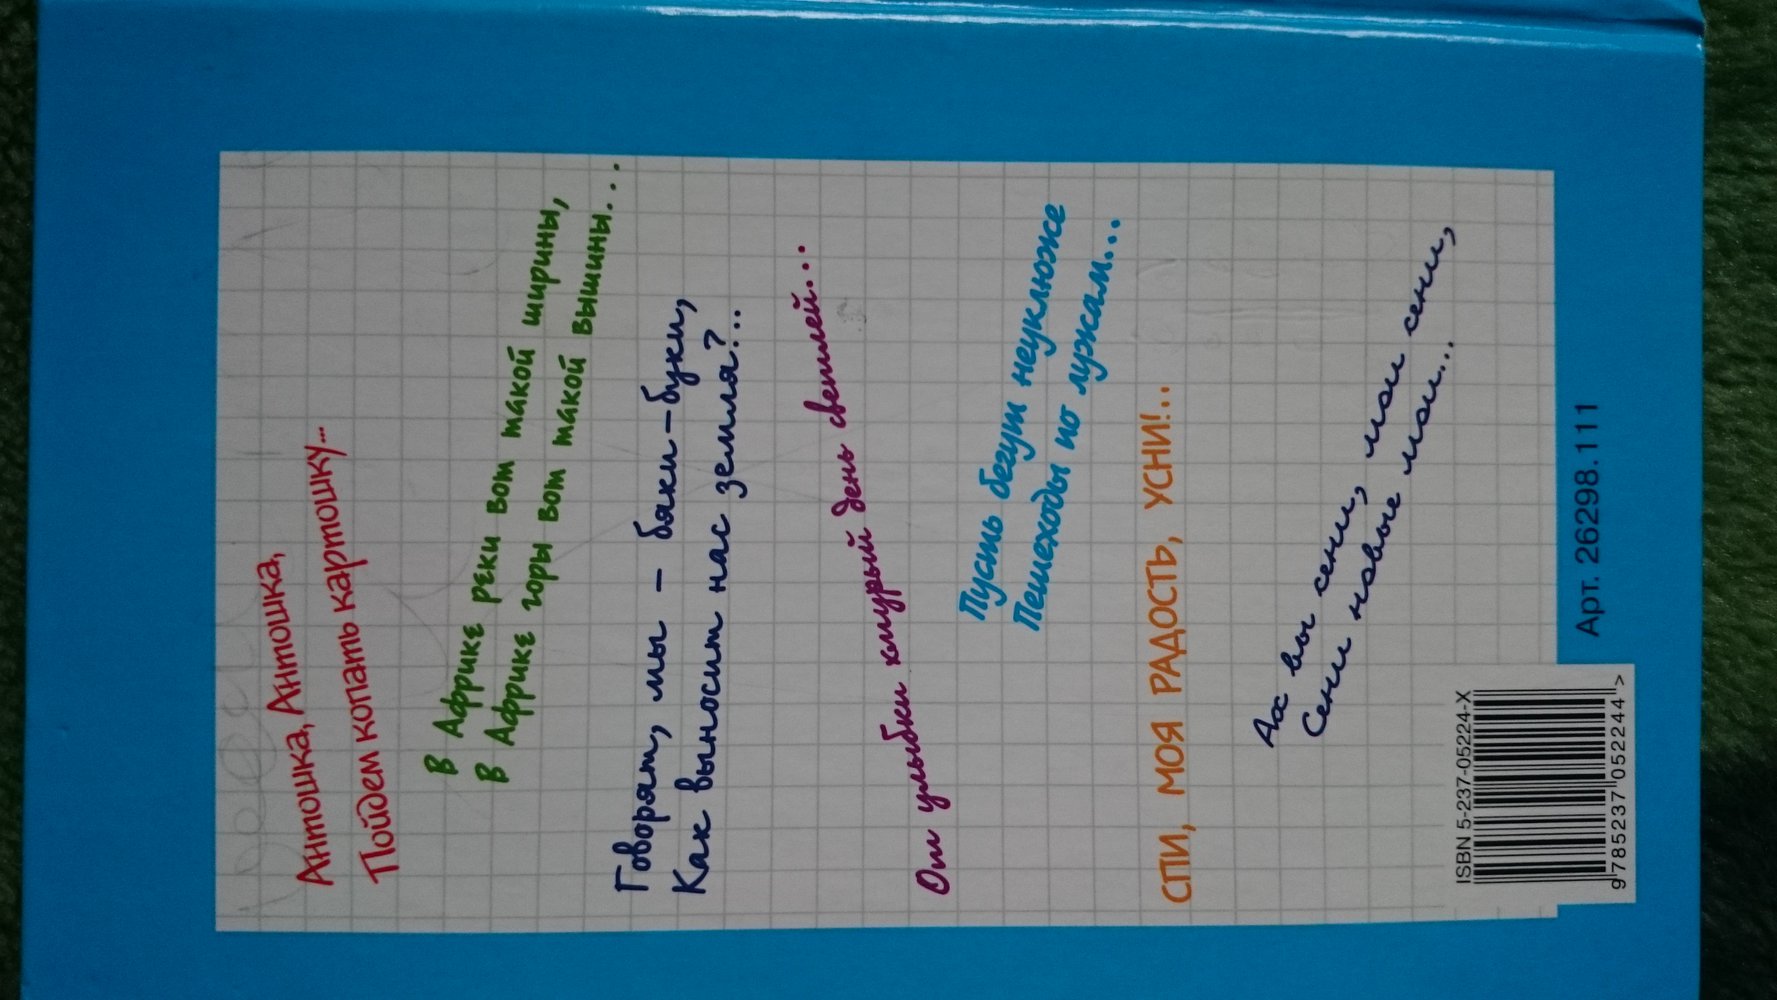 Антошка, Антошка,
Пойдем копать картошку...
В Африке реки вот такой ширины,
В Африке горы вот такой вышины...
Говорят, мы - бяки-буки,
Как выносит нас земля?..
От улыбки хмурый день светлей...
Пусть бегут неуклюже
Пешеходы по лужам...
СПИ, МОЯ РАДОСТЬ, УСНИ!..
Ах вы сени, мои сени,
Сени новые мои...
ISBN 5-237-05224-X
9 785237 052244 >
Арт. 26298.111